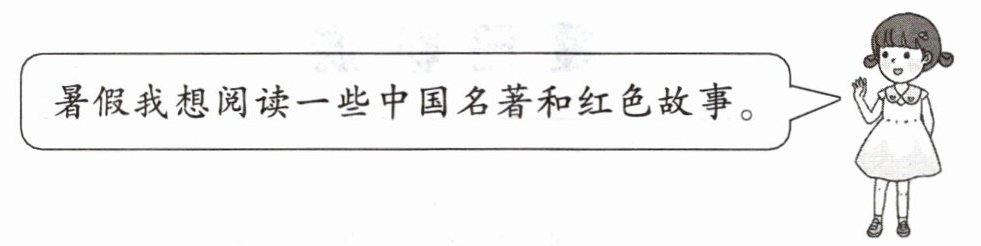 暑假我想阅读一些中国名著和红色故事。